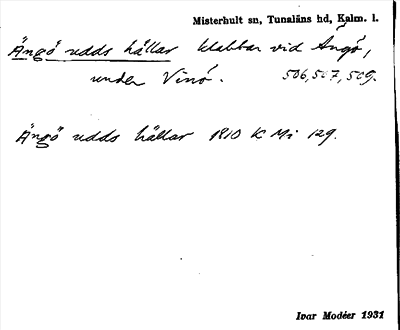 Misterhult sn, Tunaläns hd, Kalm. l.
Ängö udds hällar klabbar vid Ängö,
under Vinö. 506, 507, 509.
Ängö udds hällar 1810 K Mi 129.
Ivar Modéer 1931